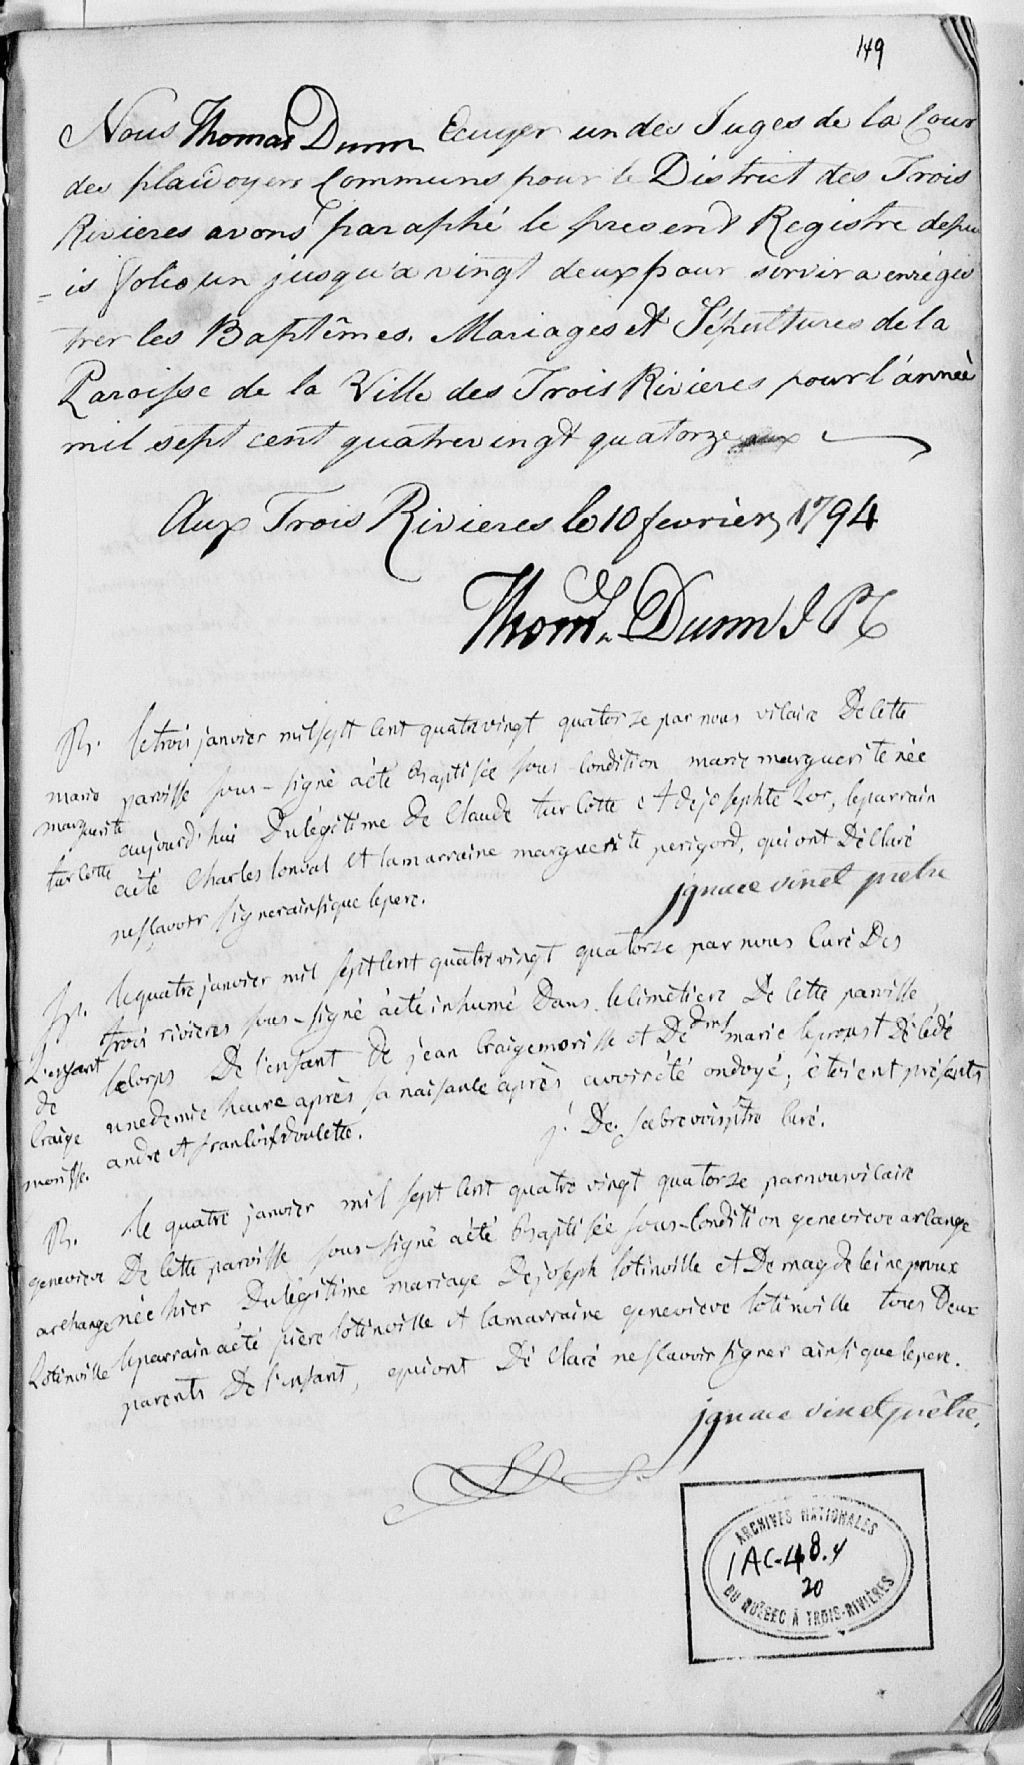 149
Nous Thomas Dunn Ecuyer un des Juges de la Cour
des plaidoyers Communs pour le District des Trois
Rivieres avons paraphé le present Registre depu
= is folio un jusqu'a vingt deux pour servir a enrégis
trer les Baptêmes. Mariages et Sépultures de la
Paroisse de la Ville des Trois Rivieres pour l'année
mil sept cent quatrevingt quatorze
Aux Trois Rivieres le 10 fevrier 1794
Thoms. Dunn J P C
B. le trois janvier mil sept cent quatre vingt quatorze par nous vicaire De cette
marie paroisse sous-signé à été Baptisée sous-condition marie marguerite née
marguerite aujourd'hui Du légitime De Claude turcotte et de josephte Lor, le parrain
turcotte à été Charles lonval et la marraine marguerite perigord, qui ont Déclaré
ne sçavoir signer ainsi que le pere.
jgnace vinet prêtre
S. le quatre janvier mil sept cent quatre vingt quatorze par nous Curé Des
trois rivieres sous-signé à été inhumé Dans le cimetiere De cette paroisse
L'enfant le corps De l'enfant De jean Craige morisse et De Dme marie leproust Décédé
de une demie heure après sa naisance après avoir été ondoyé, étoient présents
Craige andre et francois doulette.
morisse. j. De. sabrevois ptre Curé.
B. le quatre janvier mil sept cent quatre vingt quatorze par nous vicaire
genevieve De cette paroisse sous-signé à été Baptisée sous-condition genevieve arcange
archange née hier Du légitime mariage De joseph Cotinville et De magdeleine proux
Lotinville le parrain à été piere lotinville et la marraine genevieve lotinville tous Deux
parents De l'enfant, qui ont Déclaré ne sçavoir signer ainsi que le pere.
jgnace vinet prêtre.
ARCHIVES NATIONALES
1AC-48.4
20
DU QUÉBEC À TROIS-RIVIÈRES